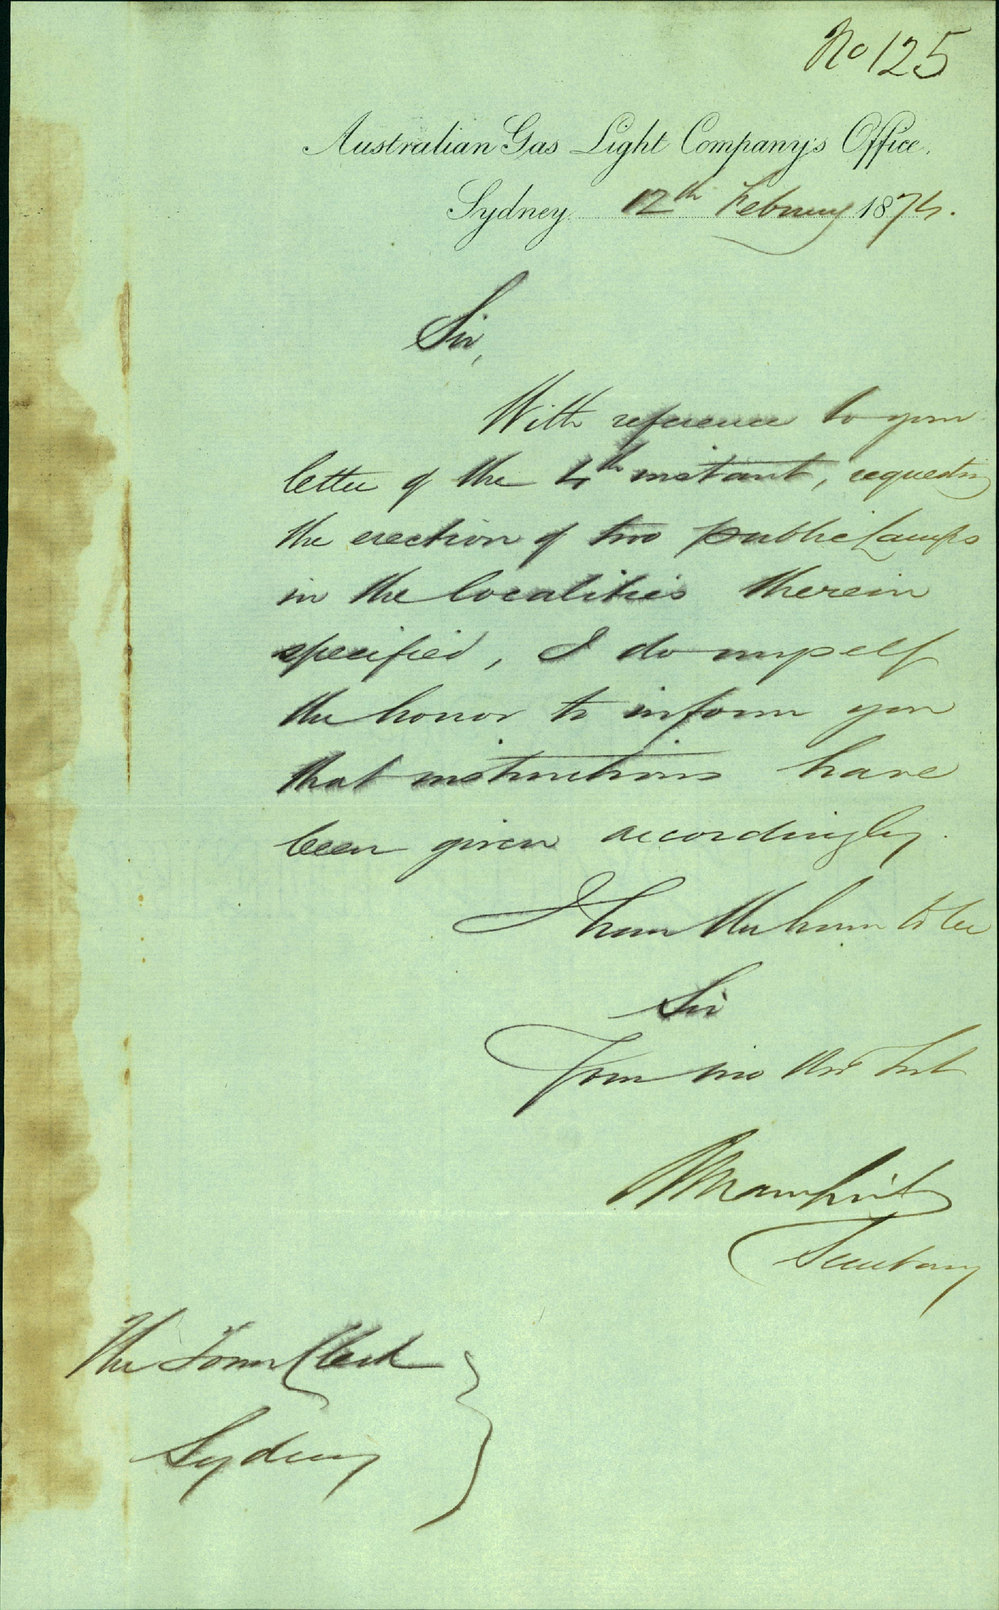 No 125
Australian Gas Light Company's Office.
Sydney 12th February 1874.
Sir,
With reference to your
letter of the 4th instant, requesting
the erection of two public Lamps
in the localities therein
specified, I do myself
the honor to inform you
that instructions have
been given accordingly.
I have the honor to be
Sir
Your mo Obt Svt
Secretary
The Town Clerk
Sydney